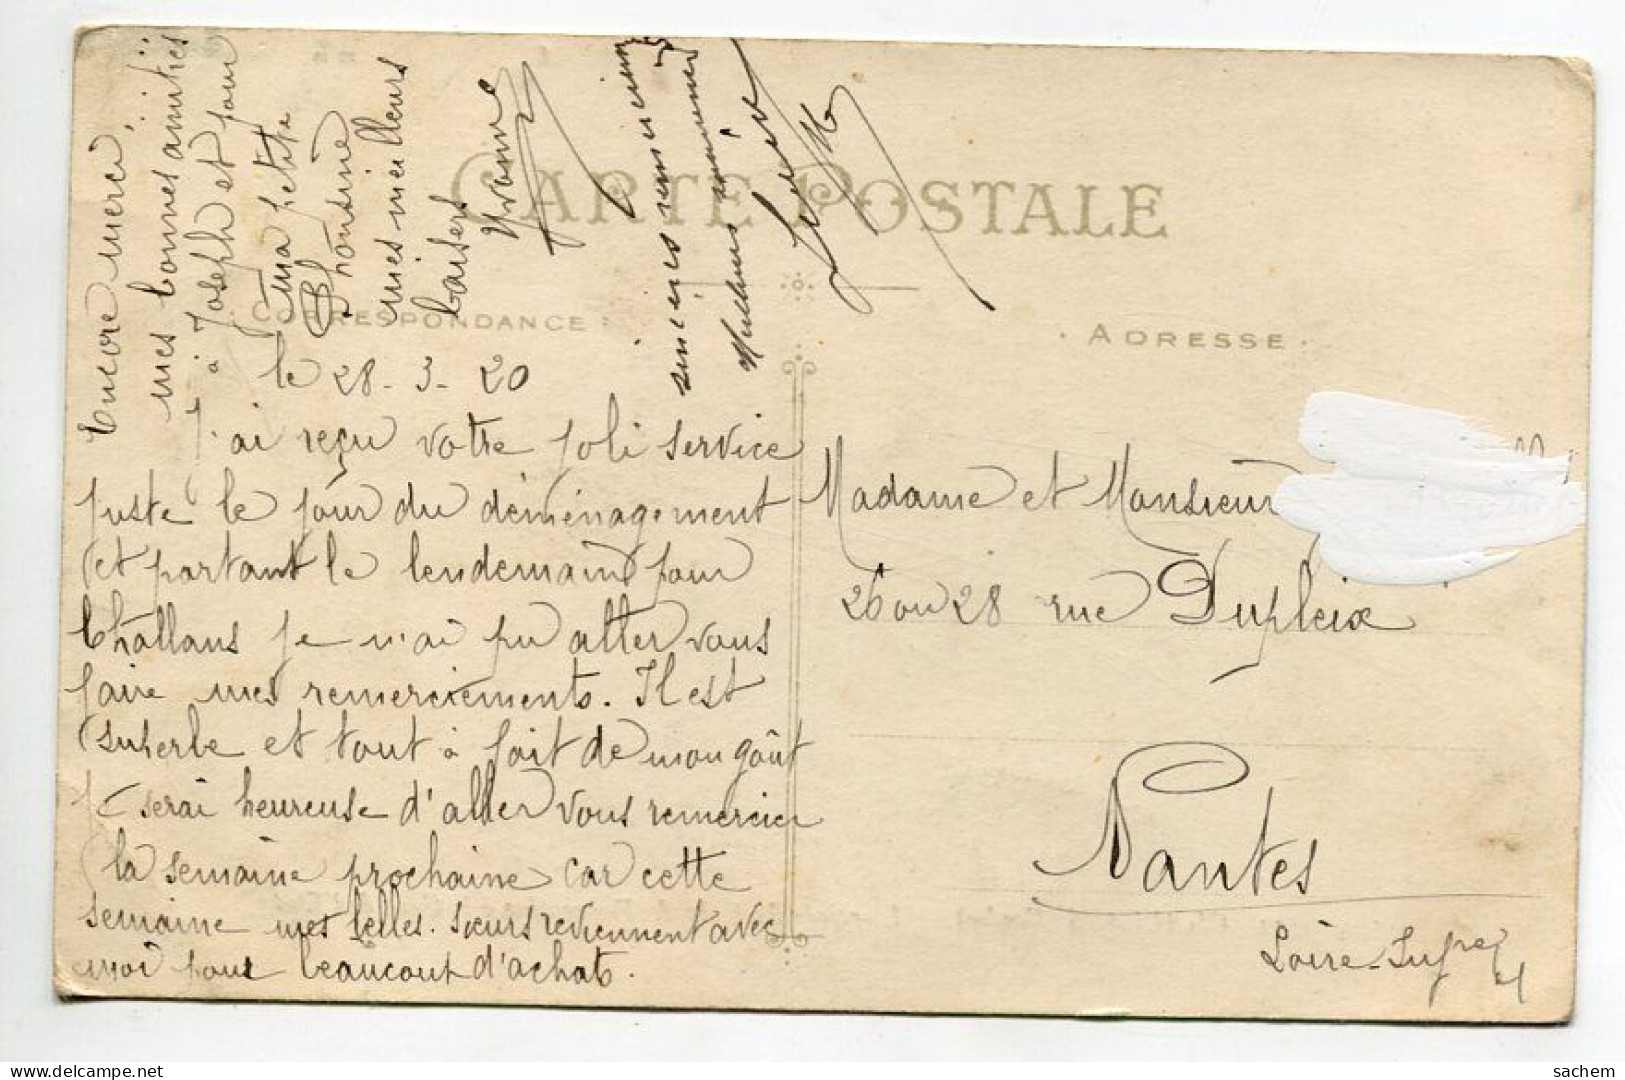 CARTE POSTALE
CORRESPONDANCE
ADRESSE
le 28-3-20
J'ai reçu votre joli service
juste le jour du déménagement
et partant le lendemain pour
Challans je n'ai pu aller vous
faire mes remerciements. Il est
superbe et tout à fait de mon goût
je serai heureuse d'aller vous remercier
la semaine prochaine car cette
semaine mes belles-sœurs reviennent avec
moi pour beaucoup d'achats.
Encore merci
mes bonnes amitiés
à Joseph et pour
ma petite
mes meilleurs
baisers
Yvonne
Meilleurs souvenirs
Madame et Monsieur
26 ou 28 rue Dupleix
Nantes
Loire-Infre
sachem